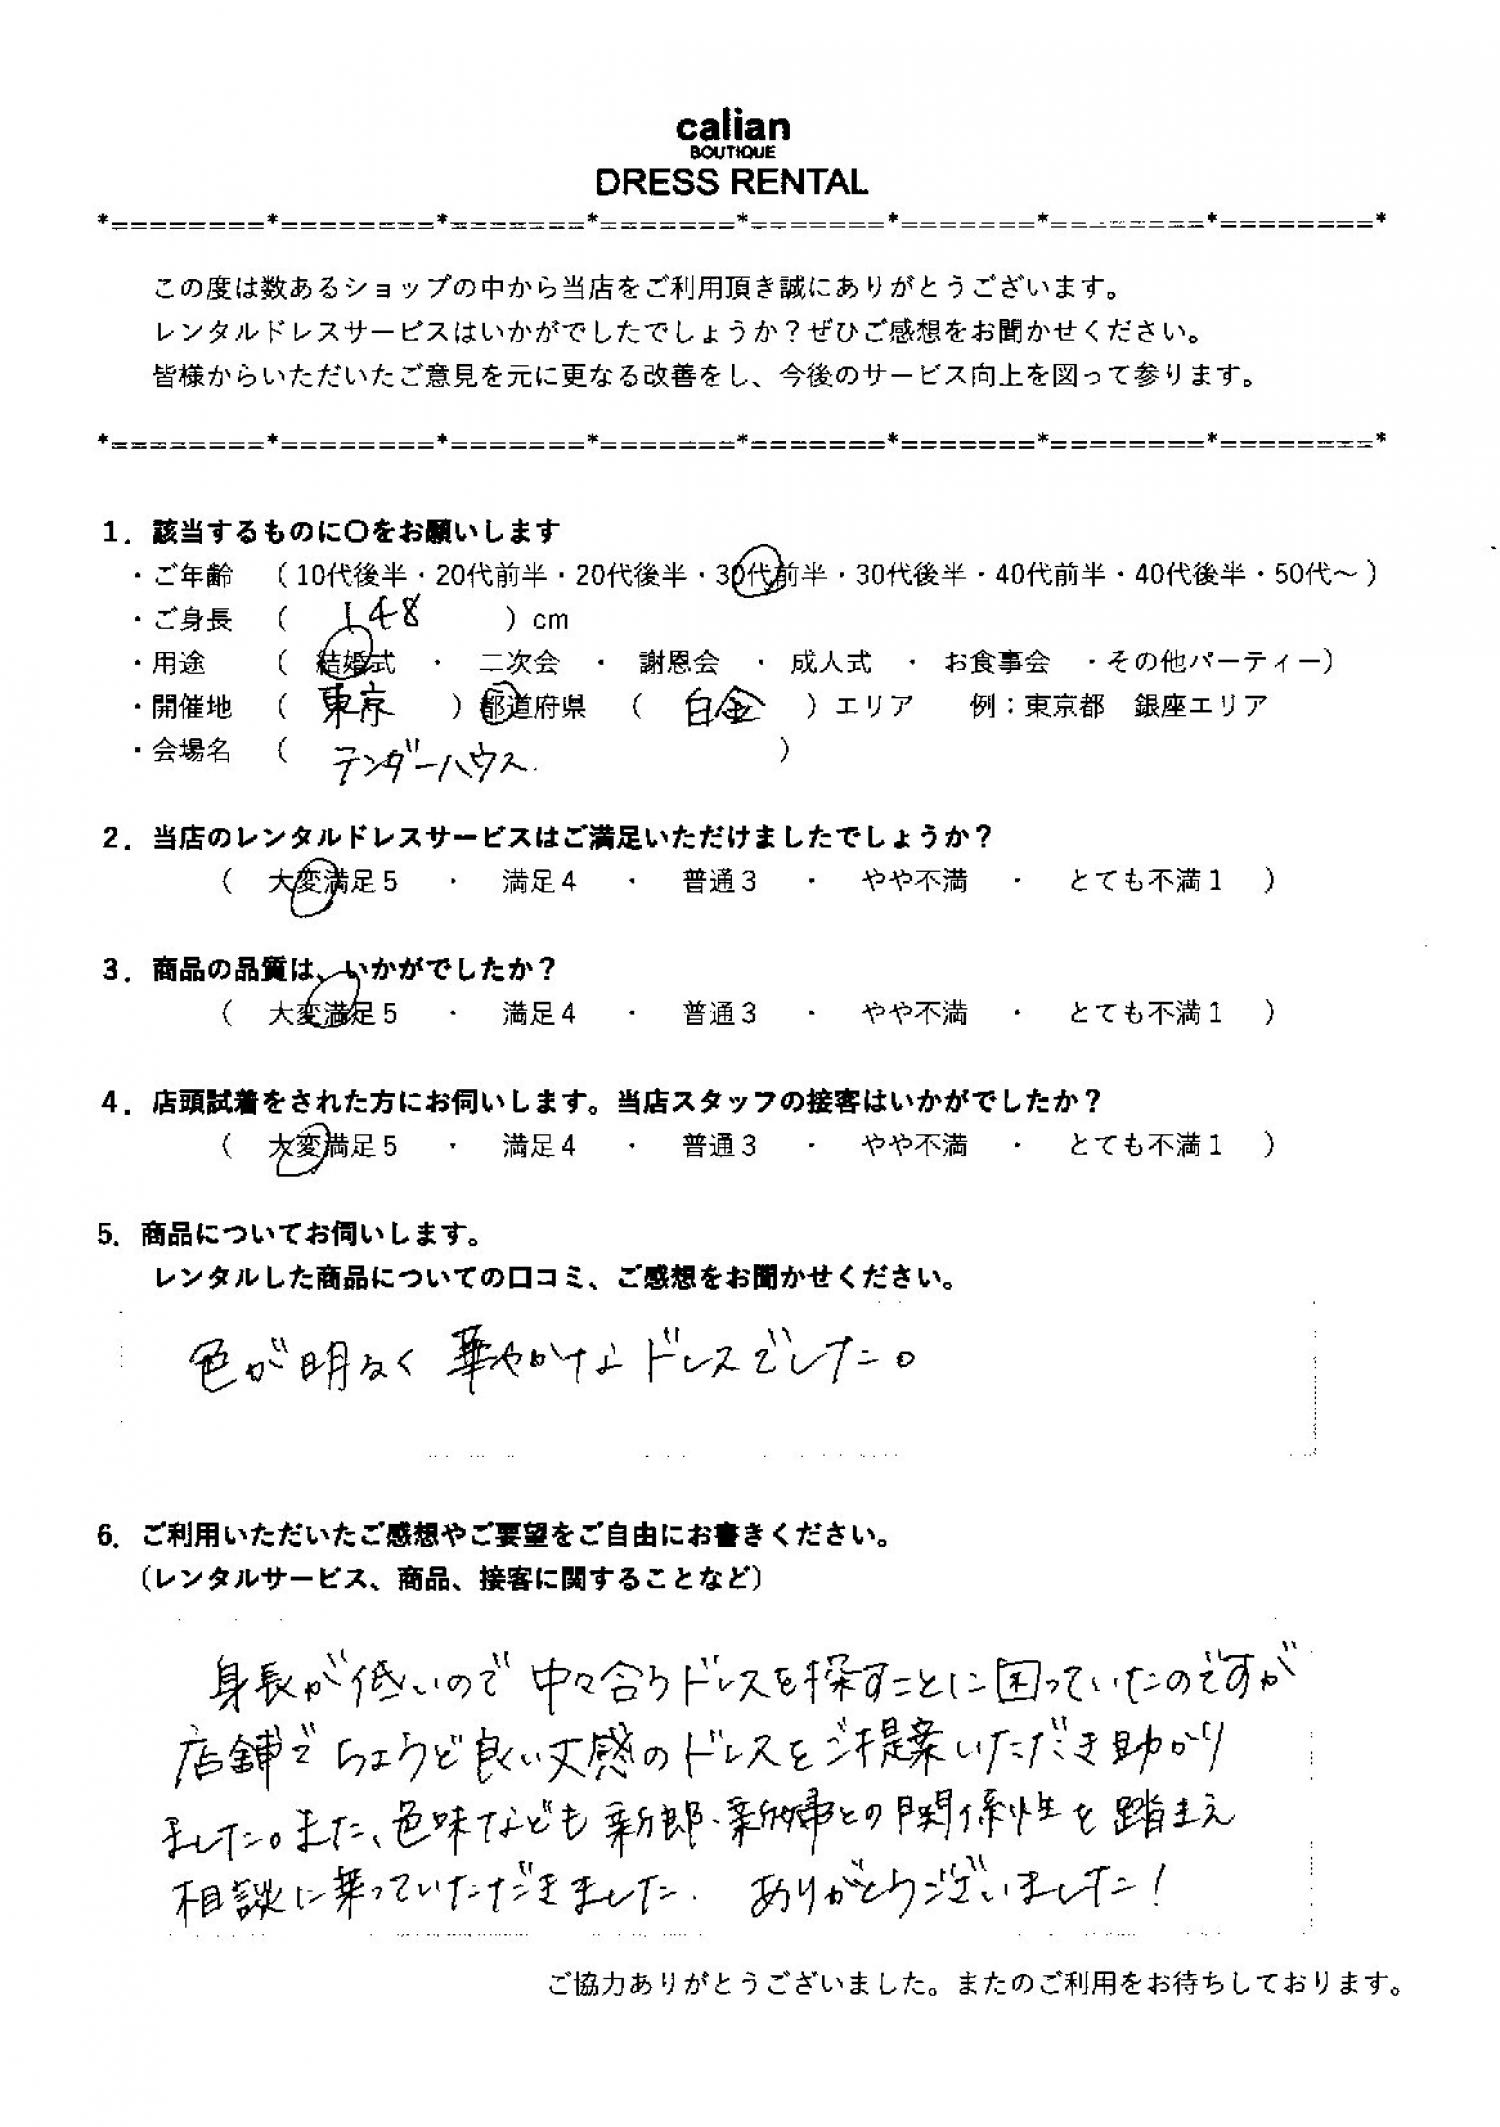 calian
BOUTIQUE
DRESS RENTAL
*========*========*=======*=======*=======*=======*========*========*
この度は数あるショップの中から当店をご利用頂き誠にありがとうございます。
レンタルドレスサービスはいかがでしたでしょうか？ぜひご感想をお聞かせください。
皆様からいただいたご意見を元に更なる改善をし、今後のサービス向上を図って参ります。
*========*========*=======*=======*=======*=======*========*========*
1．該当するものに〇をお願いします
・ご年齢 （ 10代後半・20代前半・20代後半・30代前半・30代後半・40代前半・40代後半・50代～ ）
・ご身長 （ 148 ）cm
・用途 （ 結婚式 ・ 二次会 ・ 謝恩会 ・ 成人式 ・ お食事会 ・その他パーティー）
・開催地 （ 東京 ）都道府県 （ 白金 ）エリア 例：東京都 銀座エリア
・会場名 （ テンダーハウス. ）
2．当店のレンタルドレスサービスはご満足いただけましたでしょうか？
（ 大変満足５ ・ 満足４ ・ 普通３ ・ やや不満 ・ とても不満１ ）
3．商品の品質は、いかがでしたか？
（ 大変満足５ ・ 満足４ ・ 普通３ ・ やや不満 ・ とても不満１ ）
4．店頭試着をされた方にお伺いします。当店スタッフの接客はいかがでしたか？
（ 大変満足５ ・ 満足４ ・ 普通３ ・ やや不満 ・ とても不満１ ）
5．商品についてお伺いします。
レンタルした商品についての口コミ、ご感想をお聞かせください。
色が明るく華やかなドレスでした。
6．ご利用いただいたご感想やご要望をご自由にお書きください。
（レンタルサービス、商品、接客に関することなど）
身長が低いので中々合うドレスを探すことに困っていたのですが
店舗でちょうど良い丈感のドレスをご提案いただき助かり
ました。また、色味なども新郎・新婦との関係性を踏まえ
相談に乗っていただきました. ありがとうございました！
ご協力ありがとうございました。またのご利用をお待ちしております。